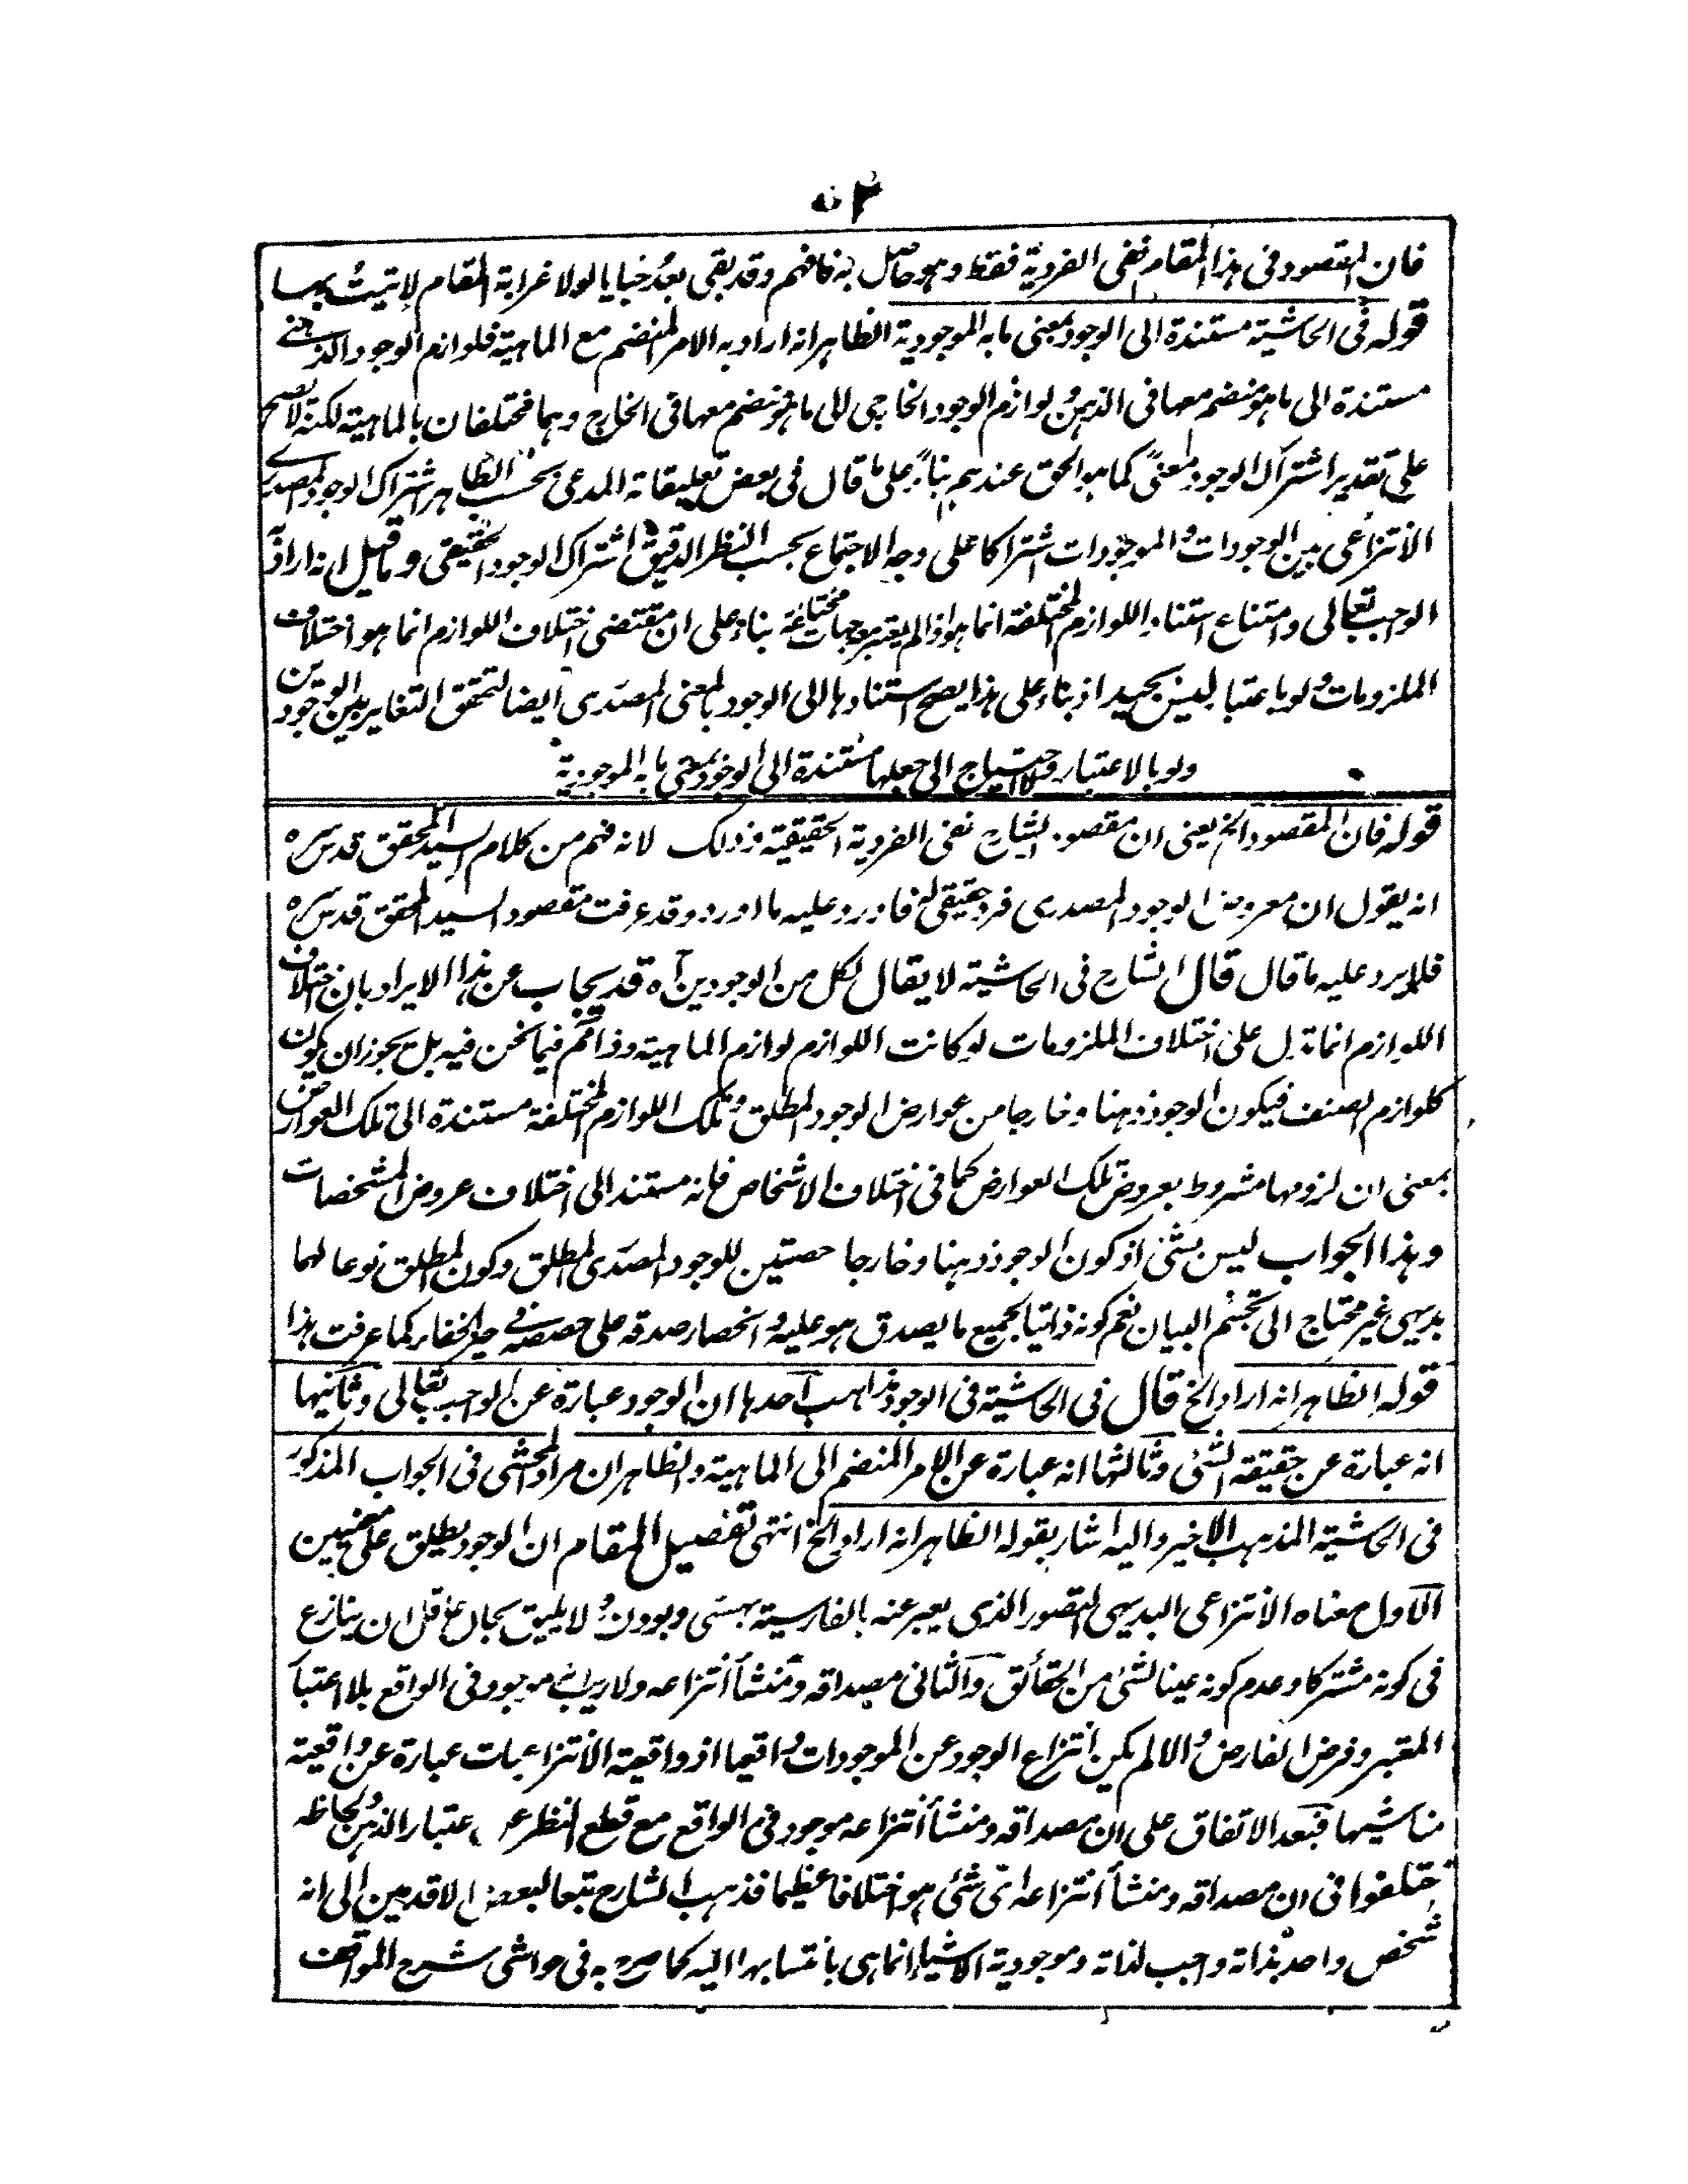 ٥٢
فان المقصود فى هذا المقام نفى الفردية فقط وهو حاصل به فافهم وقد بقى بعد خبايا لولا غرابة المقام لاتيت بها
قوله فى الحاشية مستندة الى الوجود بمعنى ما به الموجودية الظاهر انه اراد به الامر المنضم مع الماهية فلوازم الوجود الذهنى
مستندة الى ما هو منضم معها فى الذهن ولوازم الوجود الخارجى الى ما هو منضم معها فى الخارج وهما مختلفان بالماهية لكنه لا يصح
على تقدير اشتراك الوجود معنىً كما هو الحق عندهم بناءً على ما قال فى بعض تعليقاته المدعى بحسب الظاهر اشتراك الوجود المصدرى
الانتزاعى بين الوجودات والموجودات اشتراكا على وجه الاجتماع بحسب النظر الدقيق اشتراك الوجود الحقيقى وما قيل انه اراد به
الواجب تعالى وامتناع استناد اللوازم المختلفة انما هو اذا لم يعتبر معه جهات مختلفة بناء على ان مقتضى اختلاف اللوازم انما هو اختلاف
الملزومات ولو باعتبار ليس بجيد اذ بناء على هذا يصح استنادها الى الوجود بالمعنى المصدرى ايضا لتحقق التغاير بين الوجودين
ولو بالاعتبار ولا احتياج الى جعلها مستندة الى الوجود بمعنى ما به الموجودية
قوله فان المقصود الخ يعنى ان مقصود الشارح نفى الفردية الحقيقية وذلك لانه فهم من كلام السيد المحقق قدس سره
انه يقول ان معروض الوجود المصدرى فرد حقيقى له فاورد عليه ما اورد وقد عرفت مقصود السيد المحقق قدس سره
فلا يرد عليه ما قال قال الشارح فى الحاشية لا يقال لكل من الوجودين آه قد يجاب عن هذا الايراد بان اختلاف
اللوازم انما تدل على اختلاف الملزومات لو كانت اللوازم لوازم الماهية وذا ثم فيما نحن فيه بل يجوز ان يكون
كلوازم الصنف فيكون الوجود ذهنا وخارجا من عوارض الوجود المطلق وتلك اللوازم المختلفة مستندة الى تلك العوارض
بمعنى ان لزومها مشروط بعروض تلك العوارض كما فى اختلاف الاشخاص فانه مستند الى اختلاف عروض المشخصات
وهذا الجواب ليس بشئ اذ كون الوجود ذهنا وخارجا حصتين للوجود المصدرى المطلق وكون المطلق نوعا لهما
بديهى غير محتاج الى تجشم البيان نعم كونه ذاتيا لجميع ما يصدق هو عليه وانحصار صدقه على حصصه فى حيز الخفاء كما عرفت هذا
قوله الظاهر انه اراد الخ قال فى الحاشية فى الوجود مذاهب احدها ان الوجود عبارة عن الواجب تعالى وثانيها
انه عبارة عن حقيقة الشئ وثالثها انه عبارة عن الامر المنضم الى الماهية والظاهر ان مراد المحشى فى الجواب المذكور
فى الحاشية المذهب الاخير واليه اشار بقوله الظاهر انه اراد الخ انتهى تفصيل المقام ان الوجود يطلق على معنيين
الاول معناه الانتزاعى البديهى التصور الذى يعبر عنه بالفارسية بهستى وبودن ولا يليق بحال عاقل ان ينازع
فى كونه مشتركا وعدم كونه عينا لشئ من الحقائق والثانى مصداقه ومنشأ انتزاعه ولا ريب انه موجود فى الواقع بلا اعتبار
المعتبر وفرض الفارض والا لم يكن انتزاع الوجود عن الموجودات واقعيا اذ واقعية الانتزاعيات عبارة عن واقعية
مناشيها فبعد الاتفاق على ان مصداقه ومنشأ انتزاعه موجود فى الواقع مع قطع النظر عن اعتبار الذهن ولحاظه
اختلفوا فى ان مصداقه ومنشأ انتزاعه اى شئ هو اختلافا عظيما فذهب الشارح تبعا لبعض الاقدمين الى انه
شخص واحد بذاته واجب لذاته وموجودية الاشياء انما هى بانتسابها اليه كما صرح به فى حواشى شرح المواقف